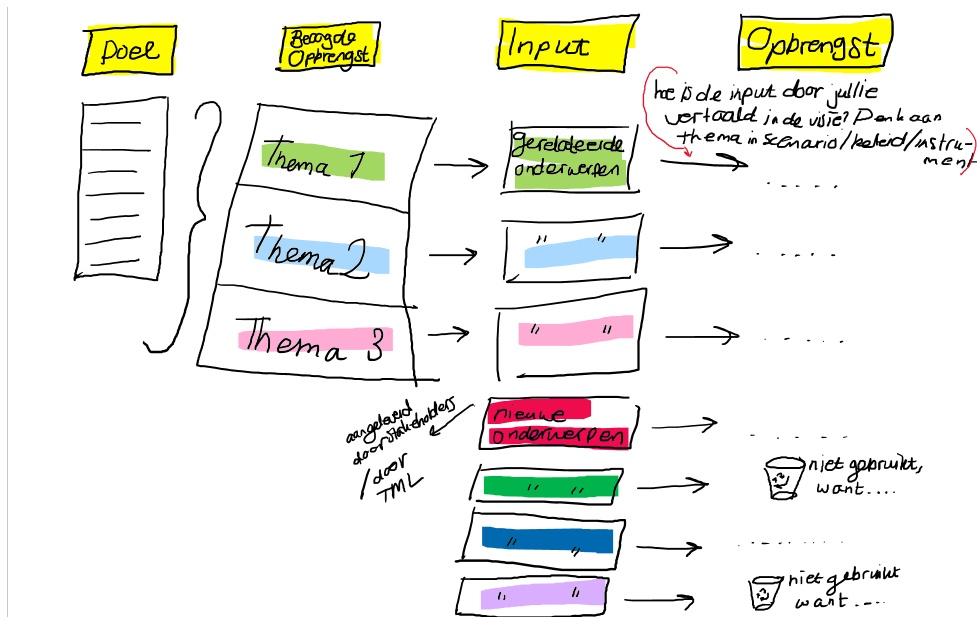 Doel
Beoogde
Opbrengst
Input
Opbrengst
hoe is de input door jullie
vertaald in de visie? Denk aan
thema in scenario/beleid/instru-
ment
Thema 1
gerelateerde
onderwerpen
. . . . .
Thema 2
" "
. . . . .
Thema 3
" "
. . . . .
aangeleverd
door stakeholders
/door
TML
nieuwe
onderwerpen
. . . . . . .
" "
niet gebruikt,
want....
" "
. . . . . . . .
" "
niet gebruikt
want.....